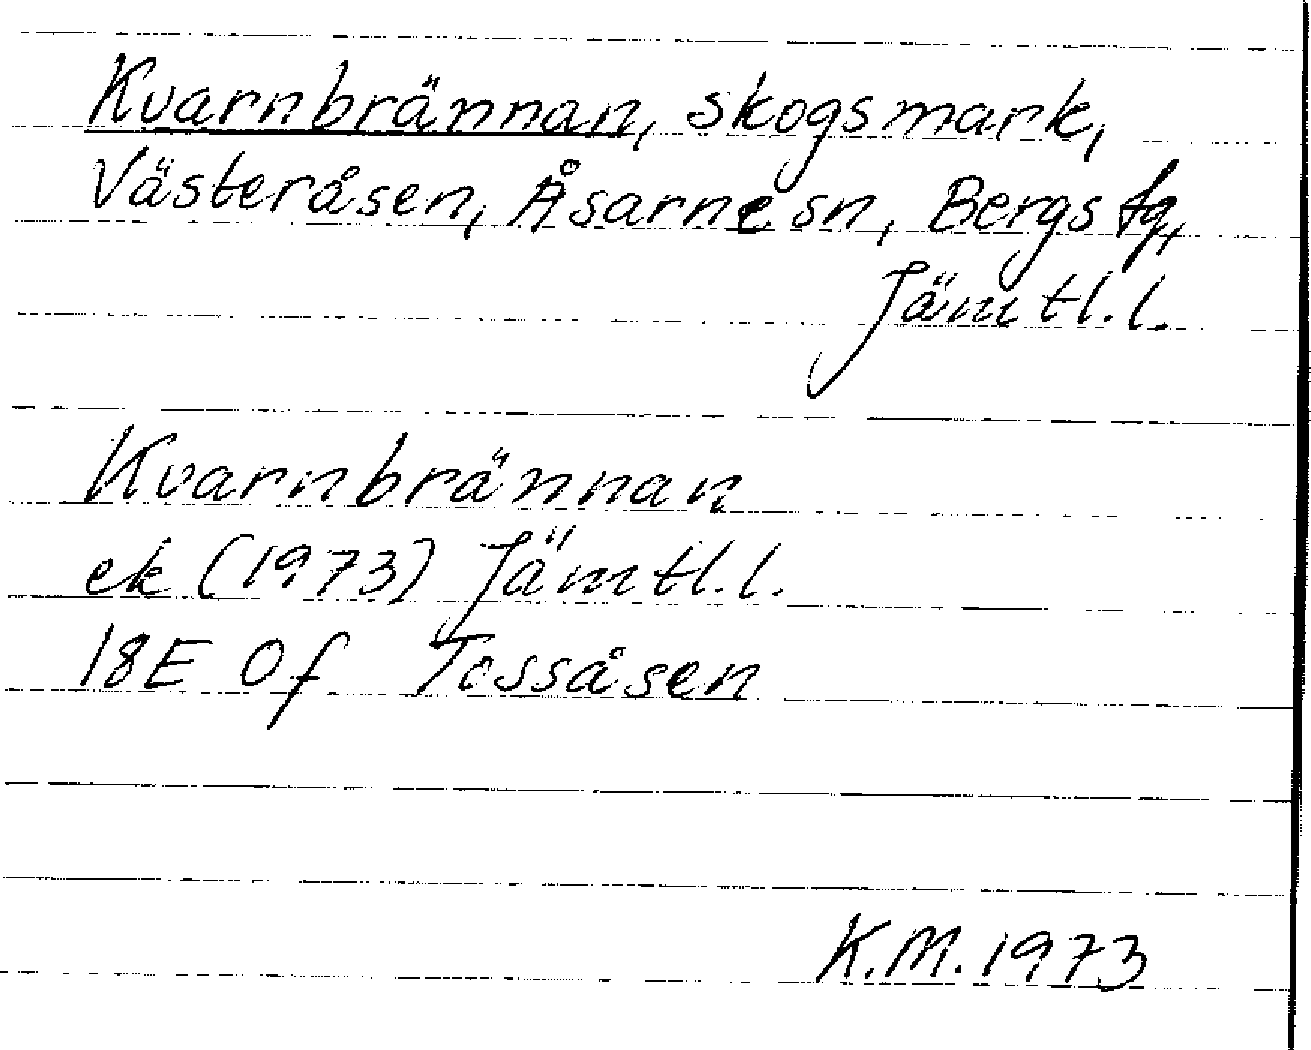 Kvarnbrännan, skogsmark,
Västeråsen, Åsarne sn, Bergs tg,
Jämtl. l.
Kvarnbrännan
ek (1973) Jämtl. l.
18E 0f Tossåsen
K.M. 1973